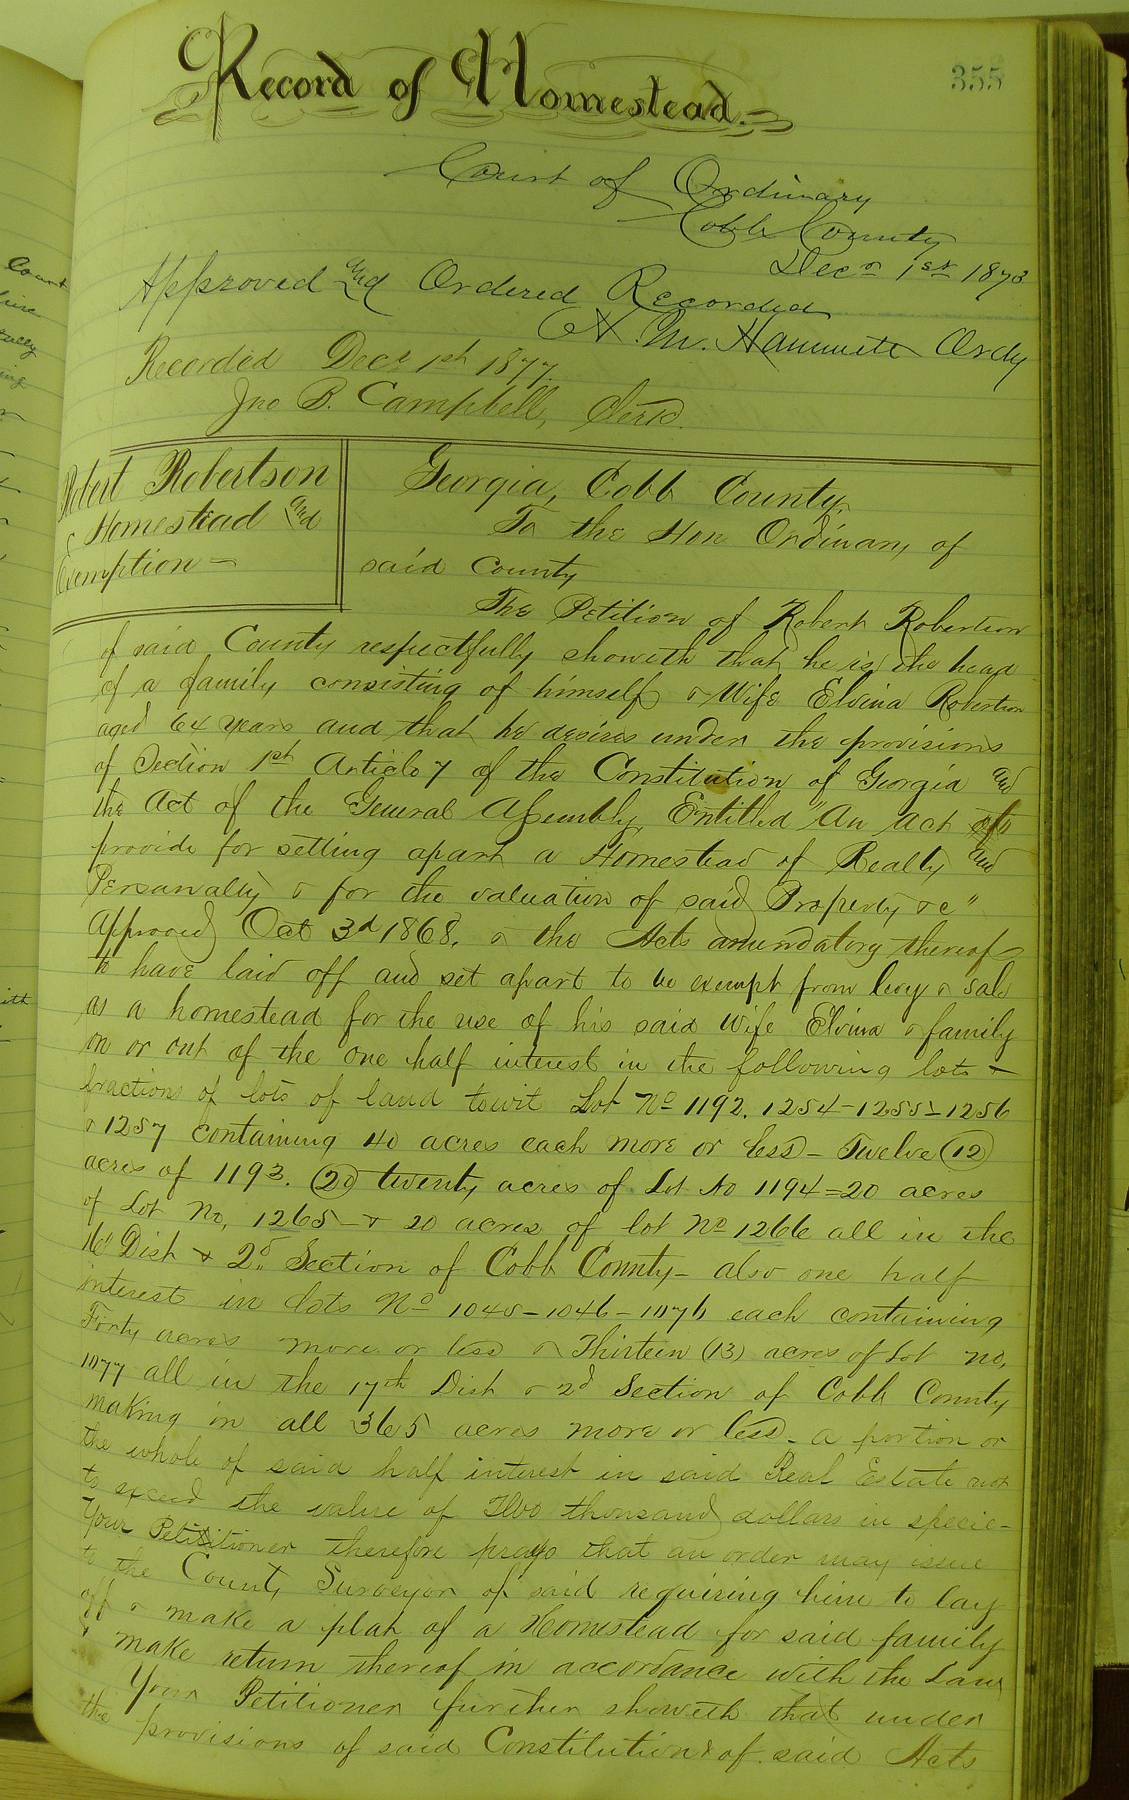 Record of Homestead.
355
Court of Ordinary
Cobb County
Decr 1st 1873
Approved and Ordered Recorded
M. Hammett Ordy
Recorded Decr 1st 1877.
Jno B. Campbell, Clerk.
Robert Robertson
Homestead and
Exemption
Georgia, Cobb County,
To the Hon Ordinary of
said County
The Petition of Robert Robertson
of said County respectfully showeth that he is the head
of a family consisting of himself & Wife Elvina Robertson
aged 64 years and that he desires under the provisions
of Section 1st Article 7 of the Constitution of Georgia and
the Act of the General Assembly, Entitled "An Act to
provide for setting apart a Homestead of Realty and
Personalty & for the valuation of said Property &c"
Approved Oct 3d 1868. & the Acts amendatory thereof
to have laid off and set apart to be exempt from levy & sale
as a homestead for the use of his said Wife Elvina & family
on or out of the one half interest in the following lots &
fractions of lots of land towit Lot No 1192. 1254-1255-1256
& 1257 containing 40 acres each more or less - Twelve (12)
acres of 1193. (20) twenty acres of Lot No 1194=20 acres
of Lot No, 1265 - & 20 acres of lot No 1266 all in the
16" Dist & 2d Section of Cobb County - also one half
interest in lots No 1045-1046-1076 each containing
Forty acres more or less & Thirteen (13) acres of Lot no,
1077 all in the 17th Dist & 2d Section of Cobb County
making in all 365 acres more or less - a portion or
the whole of said half interest in said Real Estate not
to exceed the value of Two thousand dollars in specie -
Your Petititioner therefore prays that an order may issue
to the County Surveyor of said requiring him to lay
off & make a plat of a Homestead for said family
& make return thereof in accordance with the Law
Your Petitioner further showeth that under
the provisions of said Constitution & of said Acts